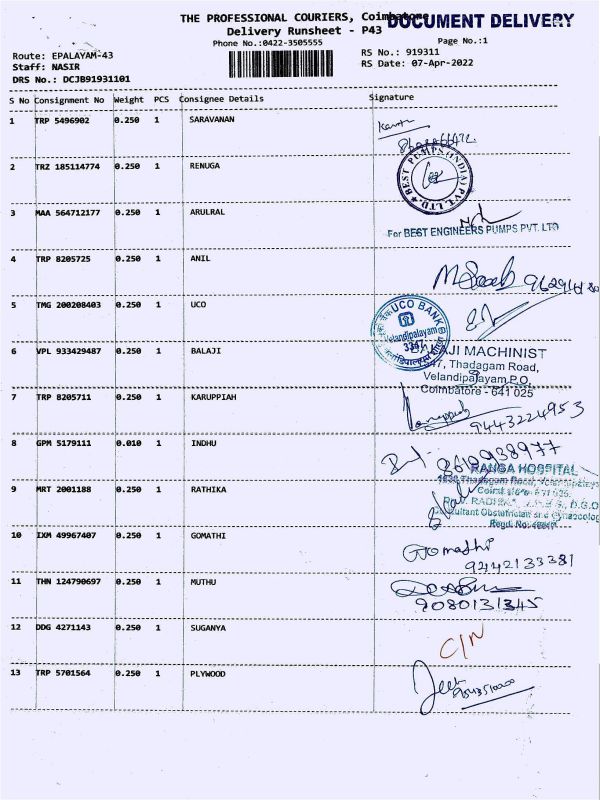 THE PROFESSIONAL COURIERS, Coimbatore
DOCUMENT DELIVERY
Delivery Runsheet - P43
Phone No.:0422-3505555
Page No.:1
Route: EPALAYAM-43
RS No.: 919311
Staff: NASIR
RS Date: 07-Apr-2022
DRS No.: DCJB91931101
S No Consignment No Weight PCS Consignee Details Signature
1 TRP 5496902 0.250 1 SARAVANAN
2 TRZ 185114774 0.250 1 RENUGA
BEST PUMPS (INDIA) PVT. LTD.
3 MAA 564712177 0.250 1 ARULRAL
For BEST ENGINEERS PUMPS PVT. LTD
4 TRP 8205725 0.250 1 ANIL
5 TMG 200208403 0.250 1 UCO
UCO BANK
Velandipalayam
3347
6 VPL 933429487 0.250 1 BALAJI
BALAJI MACHINIST
Thadagam Road,
Velandipalayam P.O,
Coimbatore - 641 025
7 TRP 8205711 0.250 1 KARUPPIAH
9443224953
8 GPM 5179111 0.010 1 INDHU
RANGA HOSPITAL
Thadagam Road,
9 MRT 2001188 0.250 1 RATHIKA
10 IXM 49967407 0.250 1 GOMATHI
Gomathi
9442133381
11 THN 124790697 0.250 1 MUTHU
9080131345
12 DDG 4271143 0.250 1 SUGANYA
C/N
13 TRP 5701564 0.250 1 PLYWOOD